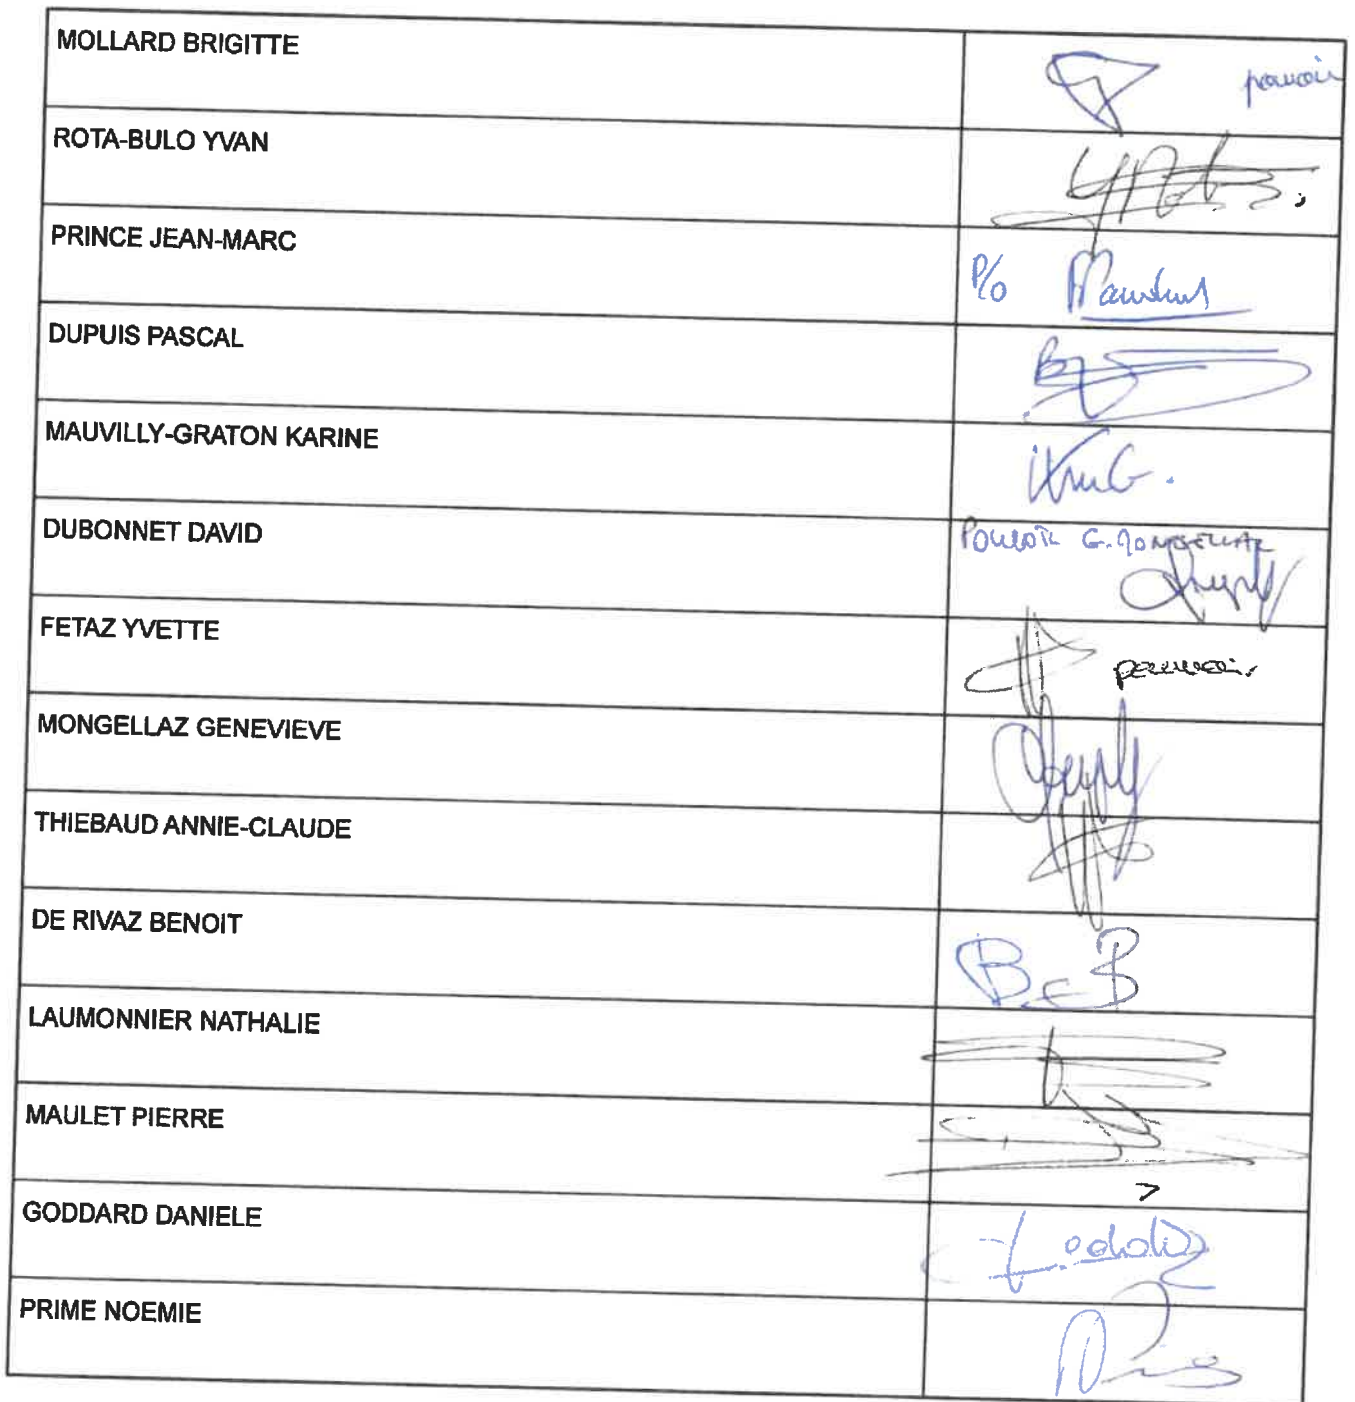 MOLLARD BRIGITTE
pouvoir
ROTA-BULO YVAN
PRINCE JEAN-MARC
P/o
DUPUIS PASCAL
MAUVILLY-GRATON KARINE
DUBONNET DAVID
POUVOIR G. MONGELLAZ
FETAZ YVETTE
pouvoir
MONGELLAZ GENEVIEVE
THIEBAUD ANNIE-CLAUDE
DE RIVAZ BENOIT
LAUMONNIER NATHALIE
MAULET PIERRE
GODDARD DANIELE
PRIME NOEMIE